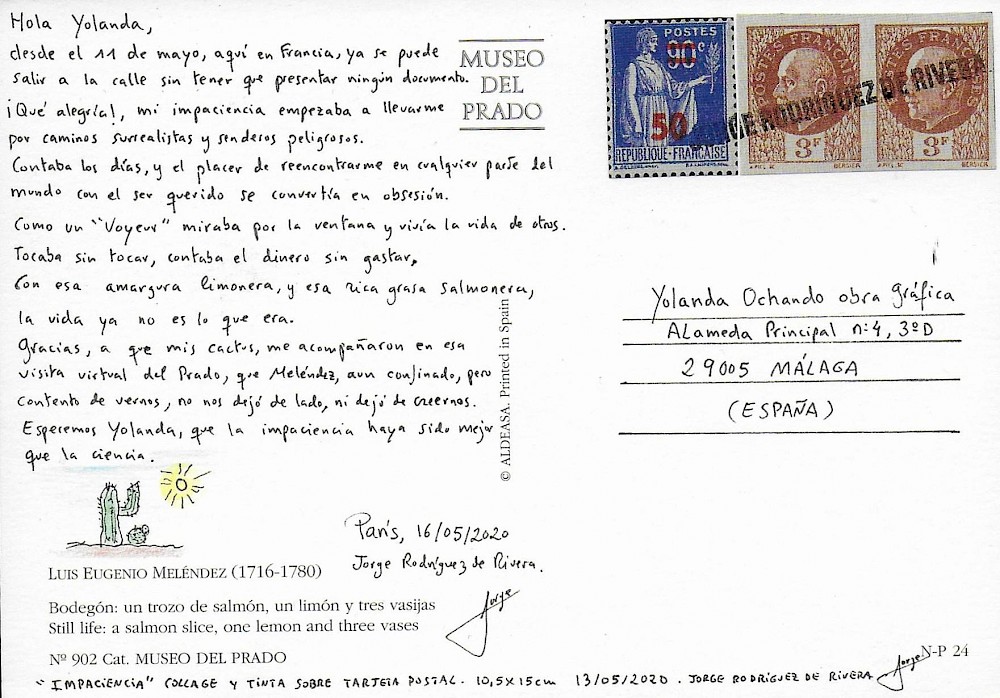 Hola Yolanda,
desde el 11 de mayo, aquí en Francia, ya se puede
salir a la calle sin tener que presentar ningún documento.
¡Qué alegría!, mi impaciencia empezaba a llevarme
por caminos surrealistas y senderos peligrosos.
Contaba los días, y el placer de reencontrarme en cualquier parte del
mundo con el ser querido se convertía en obsesión.
Como un "Voyeur" miraba por la ventana y vivía la vida de otros.
Tocaba sin tocar, contaba el dinero sin gastar,
Con esa amargura limonera, y esa rica grasa salmonera,
la vida ya no es lo que era.
Gracias, a que mis cactus, me acompañaron en esa
visita virtual del Prado, que Meléndez, aun confinado, pero
contento de vernos, no nos dejó de lado, ni dejó de creernos.
Esperemos Yolanda, que la impaciencia haya sido mejor
que la ciencia.
París, 16/05/2020
Jorge Rodríguez de Rivera.
Jorge
LUIS EUGENIO MELÉNDEZ (1716-1780)
Bodegón: un trozo de salmón, un limón y tres vasijas
Still life: a salmon slice, one lemon and three vases
Nº 902 Cat. MUSEO DEL PRADO
"IMPACIENCIA" COLLAGE Y TINTA SOBRE TARJETA POSTAL. 10,5X15cm 13/05/2020. JORGE RODRÍGUEZ DE RIVERA
Jorge
N-P 24
MUSEO
DEL
PRADO
© ALDEASA. Printed in Spain
POSTES
90c
50
RÉPUBLIQUE-FRANÇAISE
POSTES FRANÇAISES
3F
BERSIER
POSTES FRANÇAISES
3F
BERSIER
JORGE RODRIGUEZ DE RIVERA
Yolanda Ochando obra gráfica
ALameda Principal nº 4, 3º D
29005 MÁLAGA
(ESPAÑA)